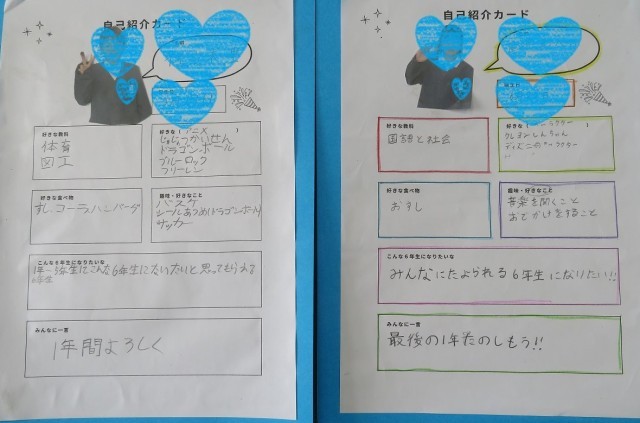 自己紹介カード
好きな教科
体育
図工
好きな(アニメ)
じゅじゅつかいせん
ドラゴンボール
ブルーロック
フリーレン
好きな食べ物
すし、コーラ、ハンバーガー
趣味・好きなこと
バスケ
シールあつめ(ドラゴンボール)
サッカー
こんな6年生になりたいな
1年~5年生にこんな6年生になりたいと思ってもらえる
6年生
みんなに一言
1年間よろしく
自己紹介カード
好きな教科
国語と社会
好きな(キャラクター)
クレヨンしんちゃん
ディズニーのキャラクター
好きな食べ物
おすし
趣味・好きなこと
音楽を聞くこと
おでかけをすること
こんな6年生になりたいな
みんなにたよられる6年生になりたい!!
みんなに一言
最後の1年たのしもう!!